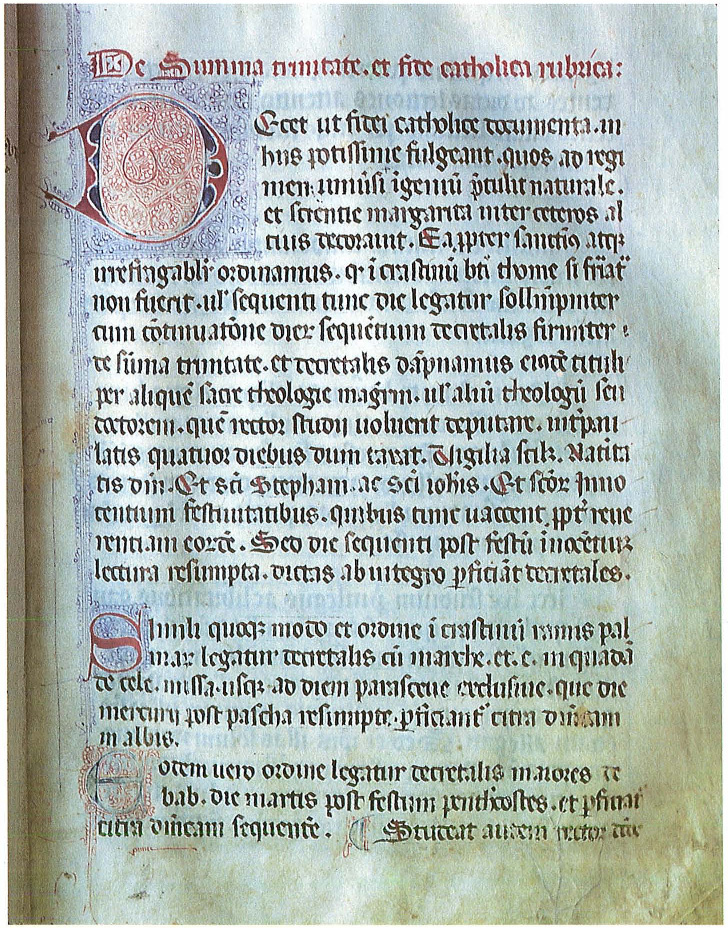 De Summa trinitate. et fide catholica rubrica:
Ecet ut fidei catholice documenta. in
hiis potissime fulgeant. quos ad regi
men. umūsi īgeniū p̄tulit naturale.
et scientie margarita inter ceteros al
cius decorauit. Ea ꝓpter sanctiꝰ atqꝫ
irrefragabilr̄ ordinamus. qꝛ ī crastinū bt̄i thome si friāt̄
non fuerit. ul' sequenti tunc die legatur sollīnpniter
cum cōtinuatōne dieꝝ sequētium decretalis firmiter
de sūma trinitate. et decretalis dāpnamus eiꝰdē tituli
per aliquē sacre theologie magr̄m. ul' aliū theologū seu
doctorem. quē rector studij uoluerit deputare. int̄pal
latis quatuor diebus dum taxat. Uigilia scilꝫ. Natiui
tis dn̄i. Et sc̄i Stephani. ac sc̄i ioh̄is. Et sc̄oꝝ Inno
centium festiuitatibus. quibus tunc uaccent ꝓpt̄ reue
rentiam eorūdē. Sed die sequenti post festū inocētuꝫ
lectura resumpta. dictas ab integro ꝑficiāt decretales.
Simili quoqꝫ modo et ordine ī crastinū ramis pal
maꝝ legatur decretalis cū marthe. et. c. in quadā
de cele. missa. usqꝫ ad diem parasceue exclusiue. que die
mercurij post pascha resumpte. ꝑficiant᷑ citra dn̄icam
in albis.
Eodem uero ordine legatur decretalis maiores de
bab. die martis post festum penthecostes. et ꝑficiāt
citra dn̄icam sequentē. ¶ Studeat autem rector